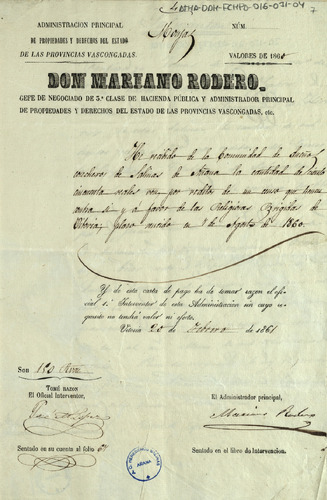 ATHA-DAH-FCMPO-016-031-04
ADMINISTRACION PRINCIPAL
DE PROPIEDADES Y DERECHOS DEL ESTADO
DE LAS PROVINCIAS VASCONGADAS.
NÚM.
VALORES DE 186
DON MARIANO RODERO,
GEFE DE NEGOCIADO DE 3.ª CLASE DE HACIENDA PÚBLICA Y ADMINISTRADOR PRINCIPAL
DE PROPIEDADES Y DERECHOS DEL ESTADO DE LAS PROVINCIAS VASCONGADAS, etc.
He recibido de la Comunidad de
de Salinas de Añana la cantidad de ciento
cuarenta reales von. por réditos de un censo que tiene
contra si y a favor de las Religiosas Brigidas de
Vitoria; plazo vencido en 1.º de Agosto de 1860.
Y de esta carta de pago ha de tomar razon el ofi-
cial 1.º Interventor de esta Administracion sin cuyo re-
quisito no tendrá valor ni efecto.
Vitoria 20 de Febrero de 1861
SON
TOMÉ RAZON
El Oficial Interventor,
El Administrador principal,
Mariano Rodero
Sentado en su cuenta al folio
Sentado en el libro de Intervencion.
AÑANA